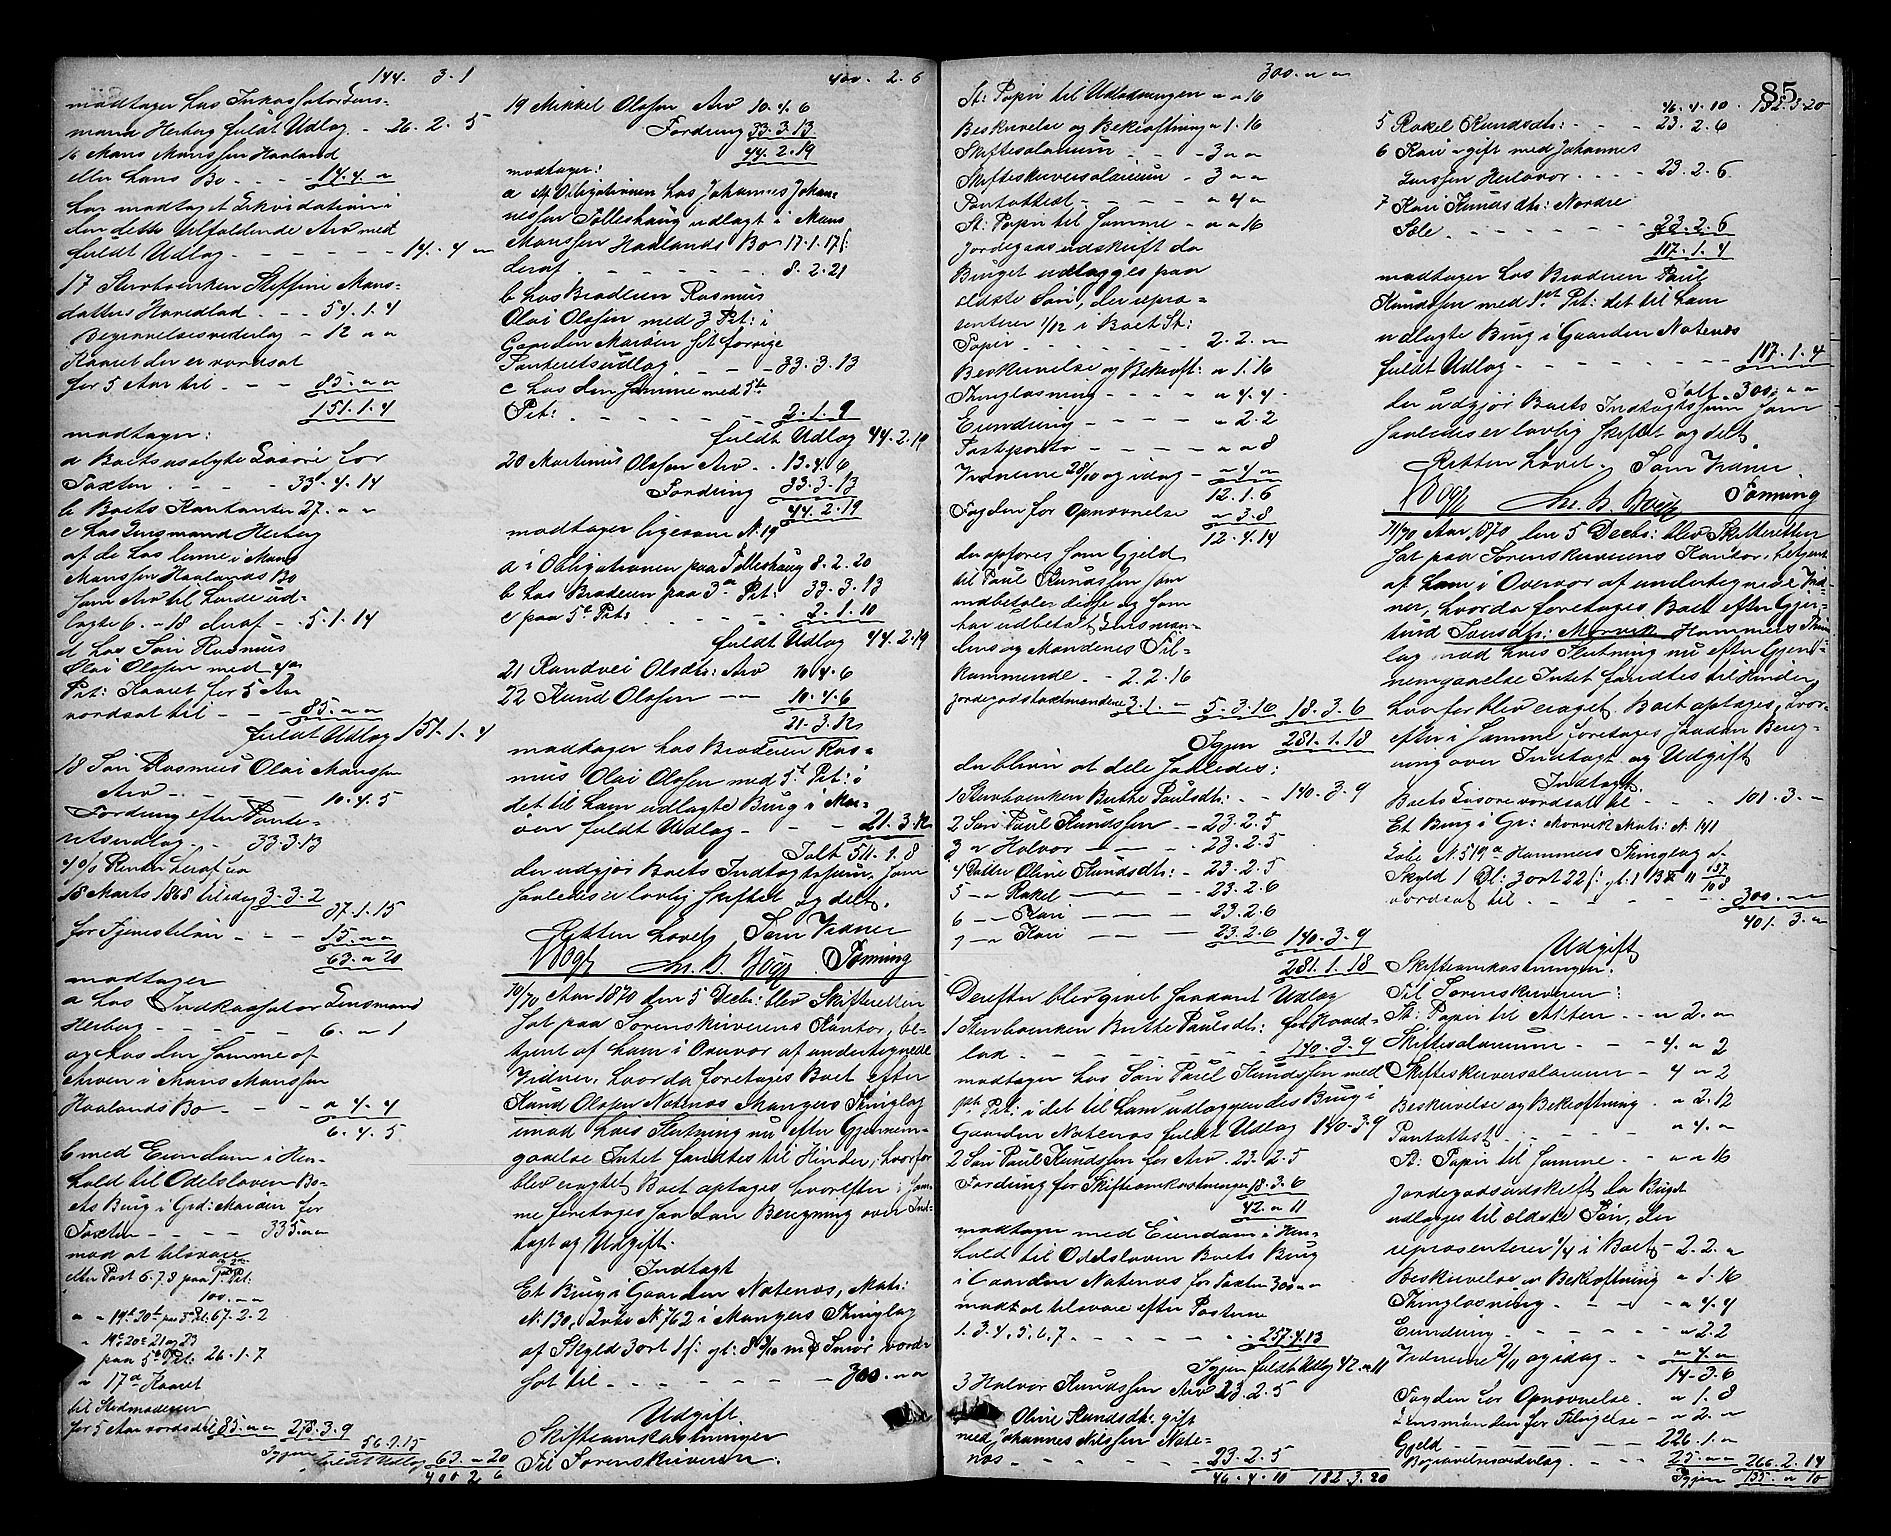 144. 3. 1
modtager hos Inkassator Lens-
mand Herberg fuldt Udlag - 26. 2. 5
16 Mons Monssen Haaland
eller hans Bo - - - 14. 4. "
har modtaget Likvidation i
den dette tilfaldende Arv med
fuldt Udlag - - - - - - 14. 4 "
17 Sterboenken Steffine Mons-
datters Hovedlod - - - 54. 1. 4
Begravelsesvederlag - 12 " "
Kaaret der er vordsat
for 5 Aar til - - - 85. " "
151. 1. 4
modtager:
a Boets usolgte Løsøre for
Taxten - - - - 33. 4. 14
b Boets Kontanter 27. " "
c hos Lensmand Herberg
af de hos denne i Mons
Monssen Haalands Bo
som Arv til hende ud-
lagte 6. " 18 deraf - - 5. 1. 14
d hos Søn Rasmus
Olai Olssen med 4de
Prt: Kaaret for 5 Aar
vordsat til - - - 85. " "
fuldt Udlag 151. 1. 4
18 Søn Rasmus Olai Monssen
Arv - - - - - 10. 4. 5
Fordring efter Pante-
retsudlag - - 33. 3. 13
4 0/0 Renter heraf fra
18 Marts 1868 til idag 3. 3. 2
37. 1. 15
for Tjenesteløn - - - 15. " "
63. " 20
modtager
a hos Indkassator Lensmand
Herberg - - - - - 6. " 1
og hos den samme af
Arven i Mons Monssen
Haalands Bo - - - " 4. 4
6. 4. 5
b med Eiendom i Hen-
hold til Odelsloven Bo-
ets Brug i Grd: Marøen for
Taxten - - - - 335. " "
mod at tilsvare
efter Post 6. 7. 8 paa 1ste Prt:
100. " "
" " 19de 20de paa 3die Prt: 67. 2. 2
" 19de 20de 21 og 22
paa 5te Prt: 26. 1. 7
" 17de Kaaret
til Stedmoderen
for 5 Aar vordsat til 85. " " 278. 3. 9
Igjen 56. 1. 15
fuldt Udlag 63. " 20
400 2 6
400. 2. 6
19 Mikkel Olssen Arv 10. 4. 6
Fordring 33. 3. 13
44. 2. 19
modtager:
a af Obligationen hos Johannes Johan-
nessen Tolleshaug udlagt i Mons
Monssen Haalands Bo 17. 1. 17 ſ:
deraf - - - - - - - 8. 2. 21
b hos Broderen Rasmus
Olai Olssen med 3 Prt: i
Gaarden Marøen sit forrige
Panteretsudlag - - - 33. 3. 13
c hos den samme med 5te
Prt: - - - - - - 2. 1. 9
fuldt Udlag 44. 2. 19
20 Martinus Olssen Arv - - 13. 4. 6
Fordring 33. 3. 13
44. 2. 19
modtager ligesom N. 19
a i Obligationen paa Tolleshaug 8. 2. 20
b hos Broderen paa 3die Prt: 33. 3. 13
c paa 5te Prt: - - - - 2. 1. 10
fuldt Udlag 44. 2. 19
21 Randvei Olsdtr: Arv 10 4. 6
22 Knud Olssen - - 10. 4. 6
21. 3. 12
modtager hos Broderen Ras-
mus Olai Olssen med 5te Prt: i
det til ham udlagte Brug i Mar-
øen fuldt Udlag - - - 21. 3. 12
Ialt 511. 1. 8
der udgjør Boets Indtægtssum, som
saaledes er lovlig skiftet og delt.
Retten hævet Som Vidner
Vogt Chr. B. Vogt Tønning
70/70 Aar 1870 den 5 Decbr: blev Skifteretten
sat paa Sorenskriverens Kontor, be-
tjent af ham i Overvær af undertegnede
Vidner, hvorda foretoges Boet efter
Knud Olssen Notenæs Mangers Thinglag
imod hvis Slutning nu efter Gjennem-
gaaelse Intet fandtes til Hinder, hvorfor
blev eragtet Boet optages hvorefter i sam-
me foretoges saadan Beregning over Ind-
tægt og Udgift.
Indtægt
Et Brug i Gaarden Notenæs, Mats:
N. 130, Løbe N. 762 i Mangers Thinglag
af Skyld 3 ort 1 ſ: gl: 8 8/10 m℔ Smør vord-
sat til - - - - - - - 300. " "
Udgift.
Skifteomkostninger
Til Sorenskriveren.
300. " "
St: Papir til Udlodningen " " 16
Beskrivelse og Bekræftning " 1. 16
Skiftesalarium - - - 3 " "
Skifteskriversalarium - 3 " "
Pantattest - - - - " 4 "
St: Papir til samme - " " 16
Jordegodsudskrift da
Bruget udlægges paa
ældste Søn, der repræ-
senterer 1/12 i Boet St:
Papir - - - - - - 2. 2. "
Beskrivelse og Bekræft: " 1. 16
Thinglæsning - - - - " 4. 4.
Eiendring - - - - - " 2. 2
Postporto - - - - - " " 8
Vidnerne 28/10 og idag - " 4 "
12. 1. 6
Fogden for Opnævnelse " 3. 8
12. 4. 14
der opføres som Gjeld
til Paul Knudssen som
indbetaler disse og som
har udbetalt Lensman-
dens og Mændenes Til-
kommende - 2. 2. 16
Jordegodstaxtmændene 3. 1. " 5. 3. 16 18. 3. 6
Igjen 281. 1. 18
der bliver at dele saaledes:
1 Sterboenken Brithe Paulsdtr: - - 140. 3. 9
2 Søn Paul Knudssen - - 23. 2. 5
3 " Halvor - - - 23. 2. 5
4 Datter Oline Knudsdtr: - 23. 2. 5
5 - " Rakel - - - 23. 2. 6
6 - " Kari - - - 23. 2. 6
7 - " Kari - - - 23. 2. 6 140. 3. 9
281. 1. 18
Derefter blev givet saadant Udlæg
1 Sterboenken Brithe Paulsdtr: for Hoved-
lod - - - - - - - 140. 3. 9
modtager hos Søn Paul Knudssen med
1ste Prt: i det til ham udlæggendes Brug i
Gaarden Notenæs fuldt Udlæg 140. 3. 9
2 Søn Paul Knudssen for Arv 23. 2. 5
Fordring for Skifteomkostninger 18. 3. 6
42. " 11
modtager med Eiendom i Hen-
hold til Odelsloven Boets Brug
i Gaarden Notenæs for Taxten 300. " "
mod at tilsvare efter Posterne
1. 3. 4. 5. 6. 7. - - - - - 257. 4. 13
Igjen fuldt Udlæg 42. " 11
3 Halvor Knudssen Arv 23. 2. 5
Oline Knudsdtr: gift
med Johannes Nilssen Note-
næs - - - - - - 23. 2. 5
46. 4. 10 182. 3. 20
85
46. 4. 10 - 182. 3. 20
5 Rakel Knudsdtr: - - - 23. 2. 6
6 Kari - gift med Johannes
Larssen Herlevær - - - - 23. 2. 6
7 Kari Knudsdtr: Nordre
Sæle - - - - - - - 23. 2. 6
117. 1. 4
modtager hos Broderen Paul
Knudssen med 1ste Prt: det til ham
udlagte Brug i Gaarden Notenæs
fuldt Udlæg - - - - - - 117. 1. 4
Ialt 300. " "
der udgjør Boets Indtægtssum som
saaledes er lovlig skiftet og delt.
Retten hævet. Som Vidner
Vogt Chr. B. Vogt Tønning
71/70 Aar 1870 den 5 Decbr: blev Skifteretten
sat paa Sorenskriverens Kontor, betjent
af ham i Overvær af undertegnede Vid-
ner, hvorda foretoges Boet efter Gjer-
trud Iversdtr: Morvik Hammers Thing-
lag mod hvis Slutning nu efter Gjen-
nemgaaelse Intet fandtes til Hinder,
hvorfor blev eragtet Boet optages, hvor-
efter i samme foretoges saadan Bereg-
ning over Indtægt og Udgift
Indtægt.
Boets Løsøre vordsat til - - - 101. 3. -
Et Brug i Gr: Morvik Mats: N. 141
Løbe N. 519a Hammers Thinglag af
Skyld 1 Dl: 3 ort 22 ſ: gl: 1
vordsat til - - - - - - - 300. " "
401. 3. "
Udgift
Skifteomkostninger.
Til Sorenskriveren:
St: Papir til Akten - - " 2. "
Skiftesalarium - - - 4. " 2
Skifteskriversalarium - 4 " 2
Beskrivelse og Bekræftning - " 2. 12
Pantattest - - - - - - " 4. "
St: Papir til samme - - " " 16
Jordegodsudskrift da Bruget
udlægges til ældste Søn, der
repræsenterer 1/4 i Boet - 2. 2. "
Beskrivelse og Bekræftning " 1. 16
Thinglæsning - - - - " 4. 4
Eiendring - - - - - - " 2. 2
Vidnerne 2/11 og idag - - " 4. "
14. 3. 6
Fogden for Opnævnelse - " 1. 8
Lensmanden for Tilsigelse - " 2. "
Gjeld - - - - - - - 226. 1. "
Begravelsesvederlag - - - 25. " " 266. 2. 14
Igjen 135. " 10